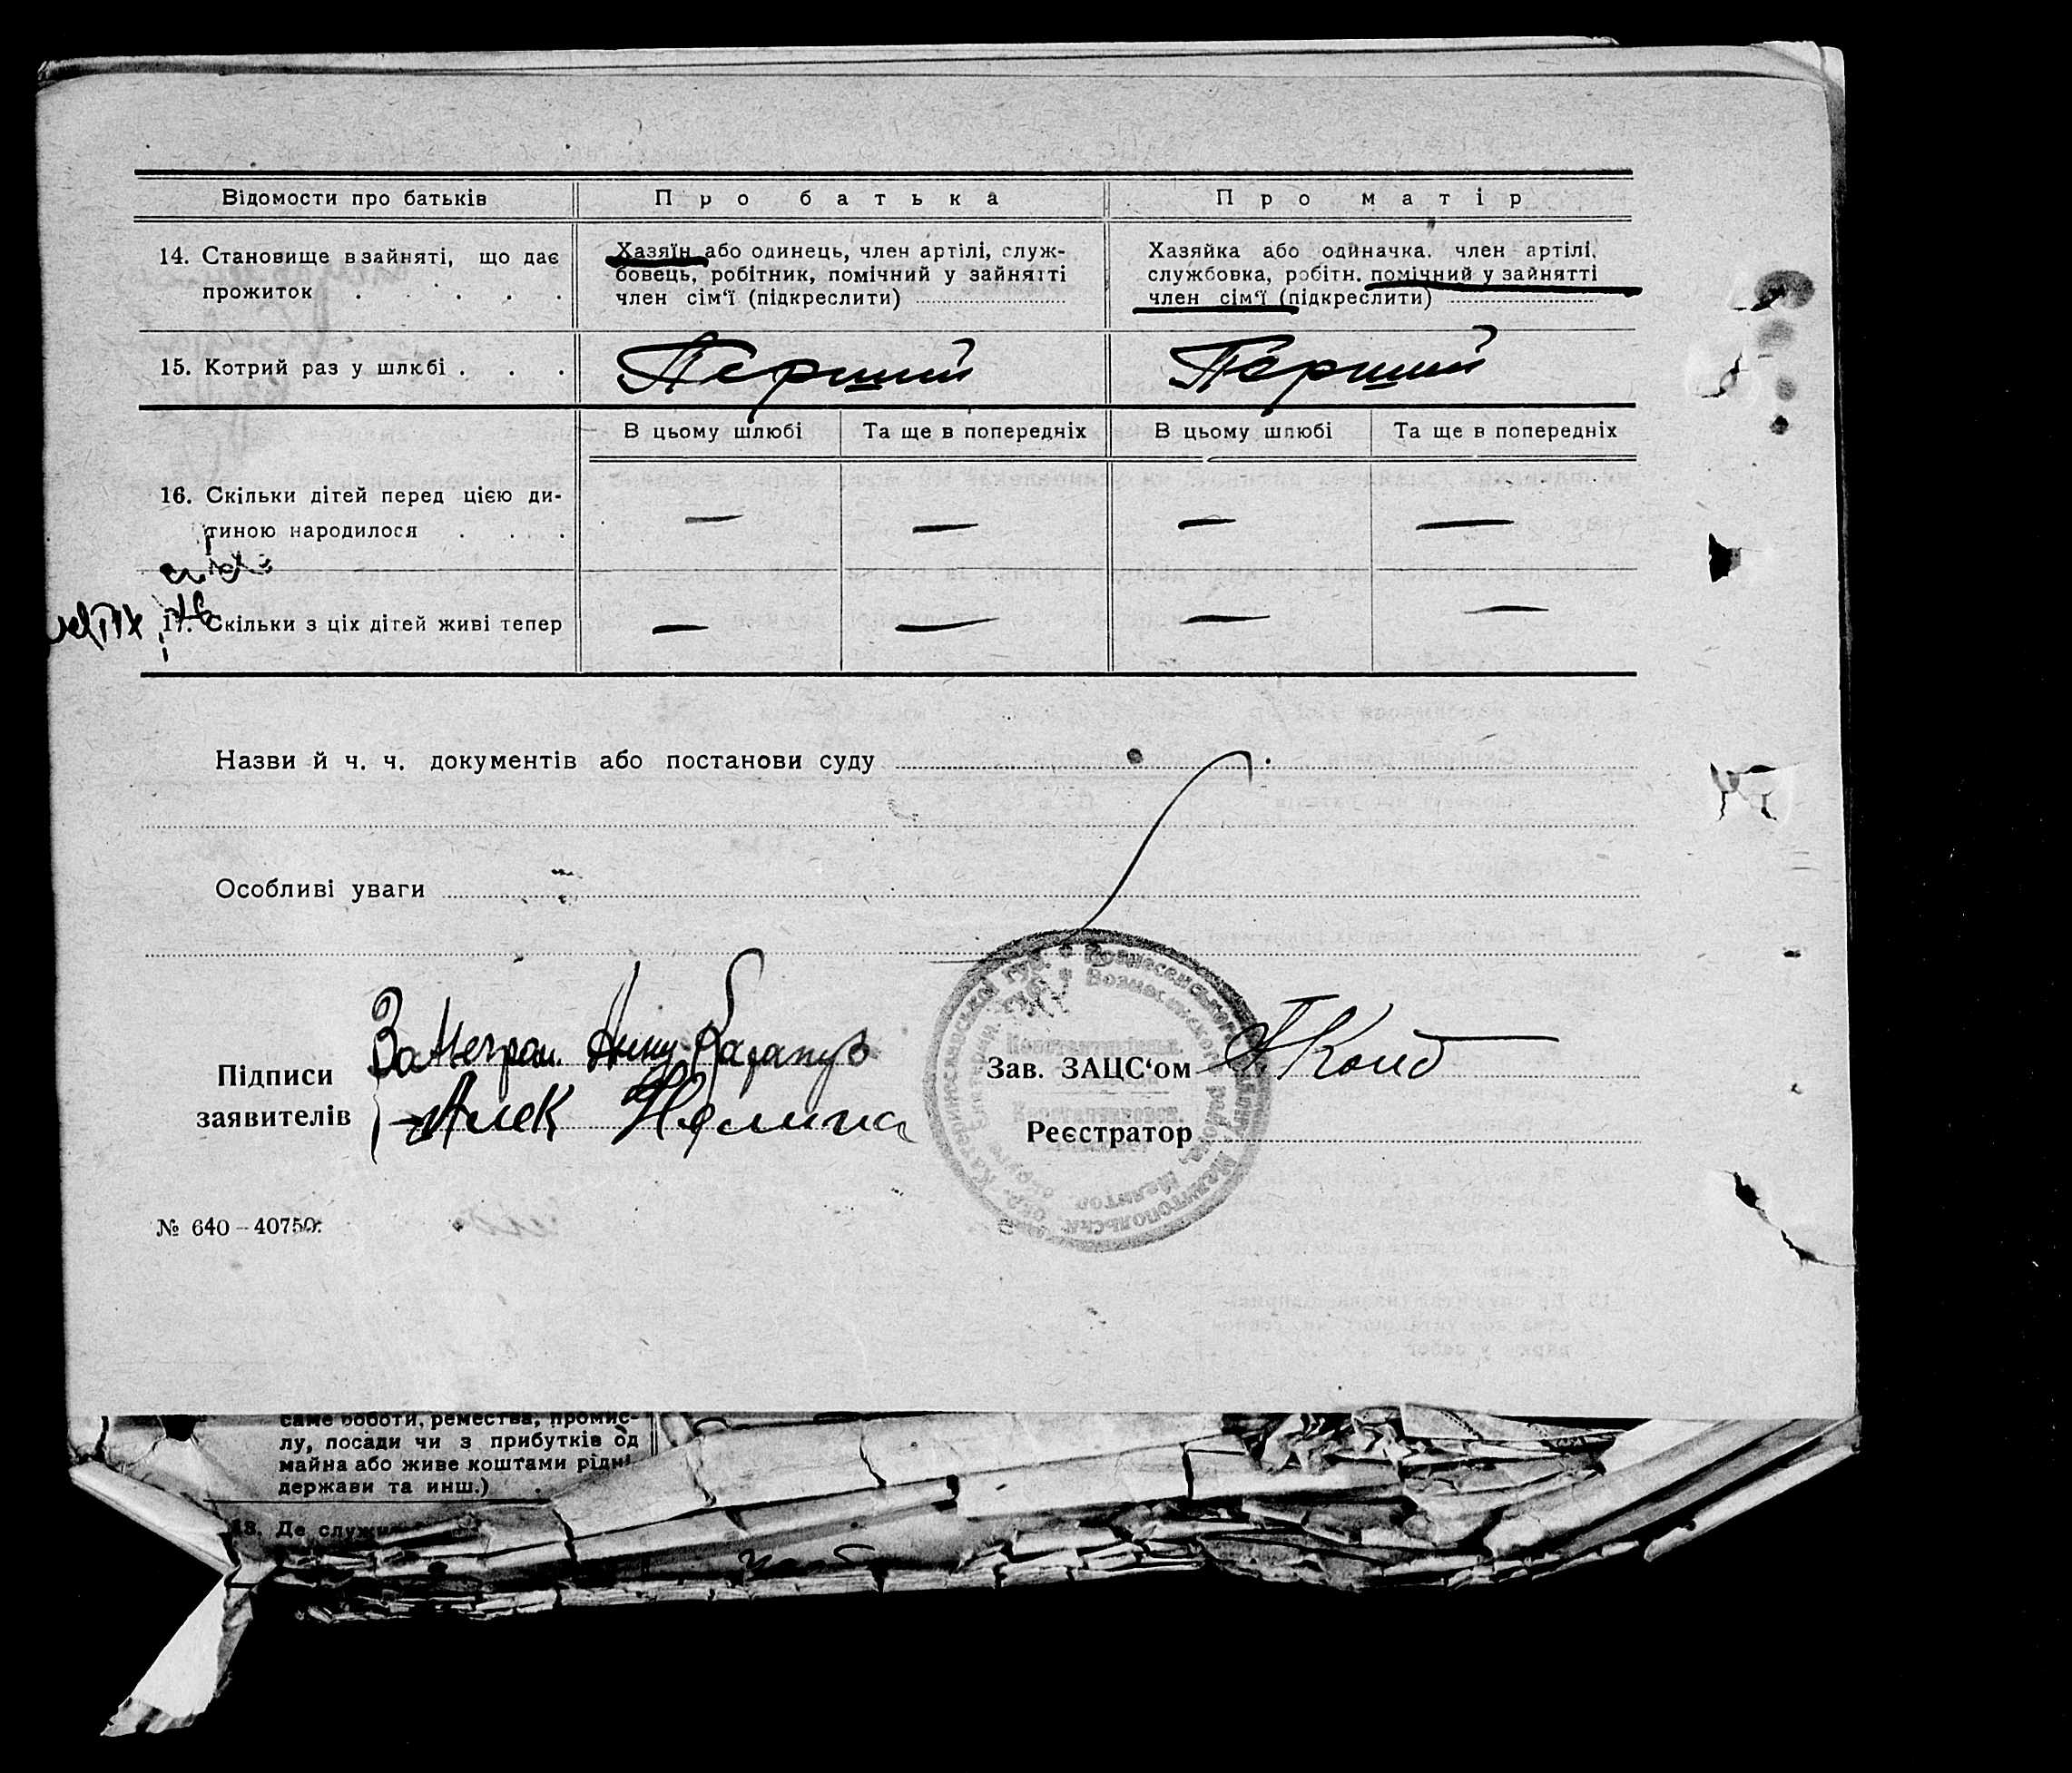 Відомости про батьків
Про батька
Про матір
14. Становище в зайняті, що дає
прожиток . . . . .
Хазяїн або одинець, член артілі, служ-
бовець, робітник, помічний у зайнятті
член сім'ї (підкреслити)
Хазяйка або одиначка, член артілі,
службовка, робітн. помічний у зайнятті
член сім'ї (підкреслити)
15. Котрий раз у шлюбі . . .
Перший
Перший
В цьому шлюбі
Та ще в попередніх
В цьому шлюбі
Та ще в попередніх
16. Скільки дітей перед цією ди-
тиною народилося . . .
— — — —
17. Скільки з ціх дітей живі тепер
— — — —
Назви й ч. ч. документів або постанови суду
Особливі уваги
Підписи
заявителів
За Неграм.
Алек
Зав. ЗАЦС'ом
Реєстратор
Катеринославської губ. Вознесенського Мелитопольськ. окр.
Вознесенского района, Мелитоп. округа Екатерин. губ.
Константинівськ.
Константиновск.
№ 640—40750.
саме роботи, ремества, промис-
лу, посади чи з прибутків од
майна або живе коштами рідні
держави та инш.) .
13. Де служи